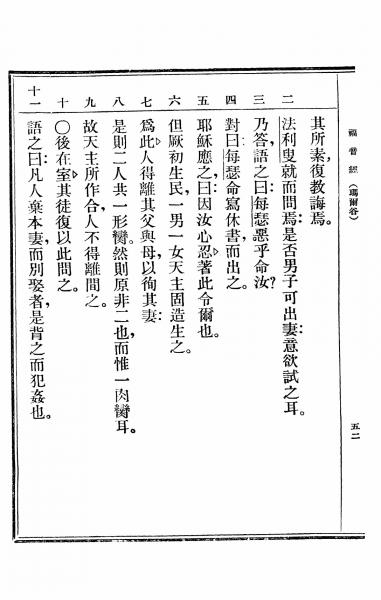 福音經（瑪爾谷）
五二
其所素，復教誨焉。
二 法利叟就而問焉：是否男子可出妻：意欲試之耳。
三 乃答語之曰：每瑟惡乎命汝？
四 對曰：每瑟命寫休書，而出之。
五 耶穌應之，曰：因汝心忍著此令爾也。
六 但厥初生民，一男一女天主固造生之。
七 爲此人得離其父與母，以徇其妻：
八 是則二人共一形臠。然則原非二也，而惟一肉臠耳。
九 故天主所作合，人不得離間之。
十 〇後在室，其徒復以此問之。
十一 語之曰：凡人棄本妻，而別娶者，是背之而犯姦也。